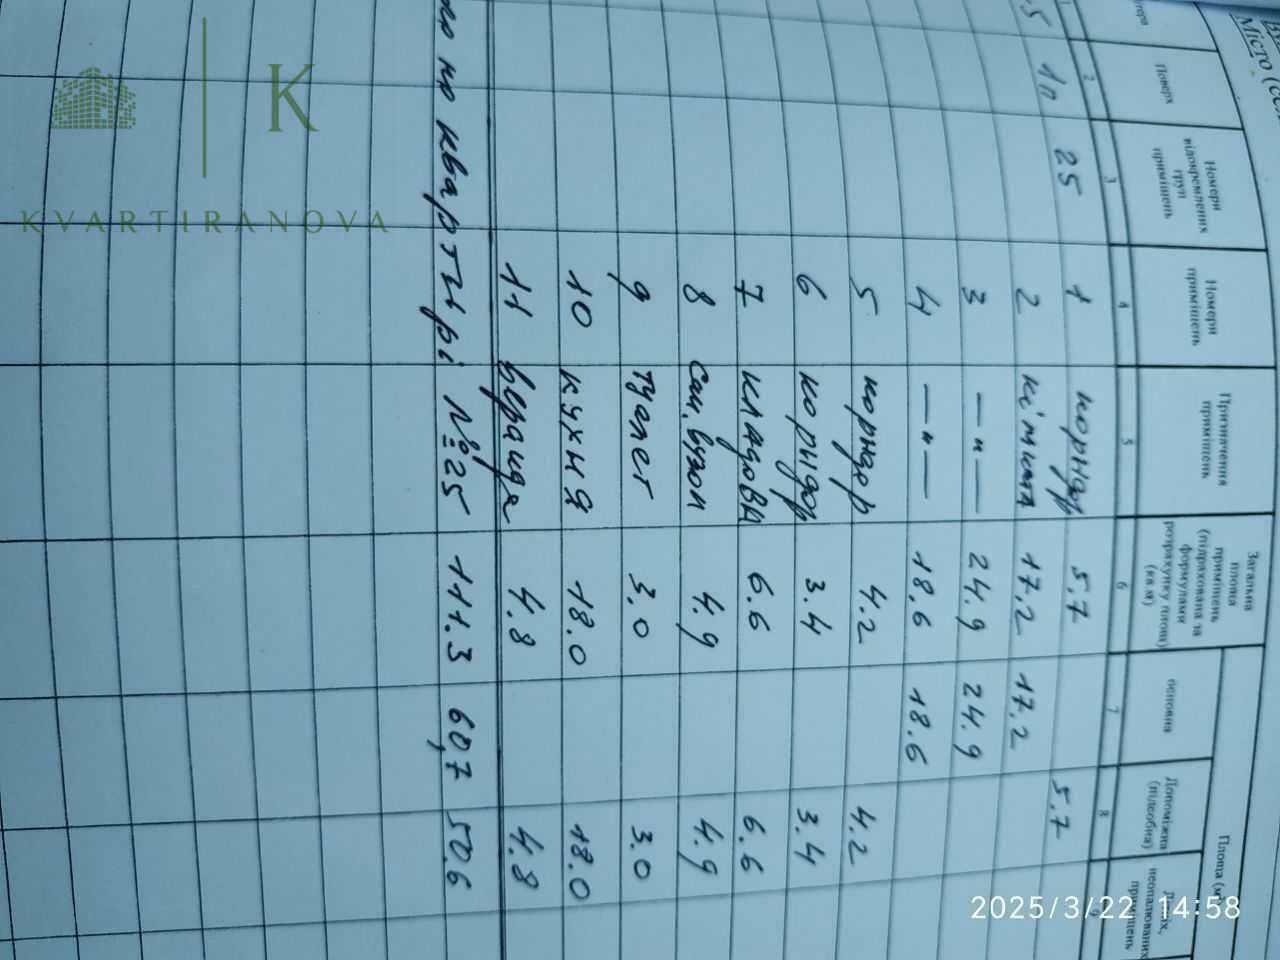 Місто
Поверх
Номери відокремлених груп приміщень
Номери приміщень
Призначення приміщень
Загальна площа приміщень (підрахована за формулами розрахунку площ) (кв.м)
Площа
основна
Допоміжна (підсобна)
неопалюваних приміщень
2 3 4 5 6 7 8
1п 25 1 коридор 5.7 5.7
2 кімната 17.2 17.2
3 —"— 24.9 24.9
4 —"— 18.6 18.6
5 коридор 4.2 4.2
6 коридор 3.4 3.4
7 кладова 6.6 6.6
8 сан.вузол 4.9 4.9
9 туалет 3.0 3.0
10 кухня 18.0 18.0
11 веранда 4.8 4.8
по квартирі №25 111.3 60,7 50.6
K
KVARTIRANOVA
2025/3/22 14:58